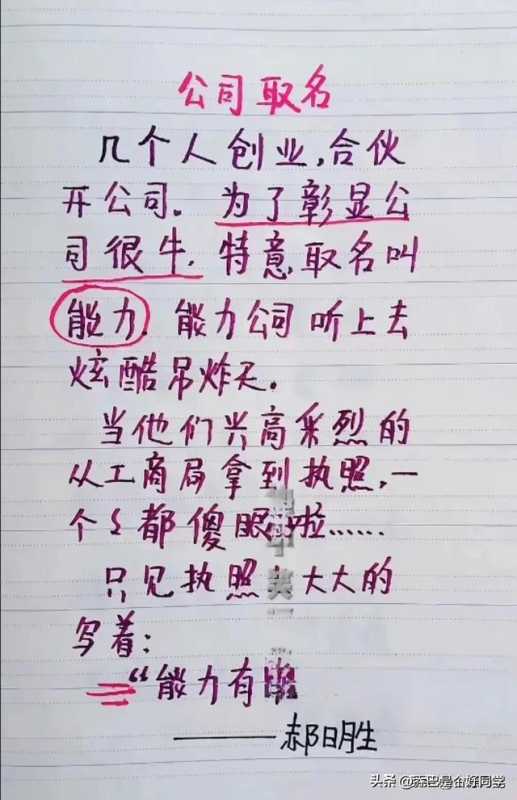 公司取名
几个人创业,合伙
开公司。为了彰显公
司很牛.特意取名叫
能力.能力公司听上去
炫酷吊炸天。
当他们兴高采烈的
从工商局拿到执照,一
个〻都傻眼啦……
只见执照 大大的
写着:
“能力有
——郝日胜
头条 @ 好同学